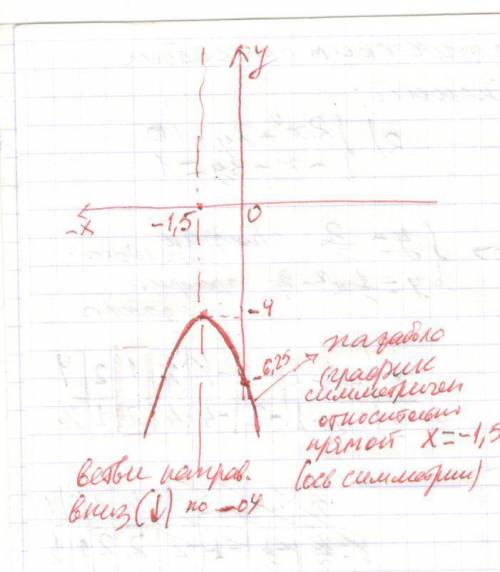 y
-x
-1,5
0
-4
-6,25
парабола
(график
симметричен
относительно
прямой x=-1,5
(ось симметрии)
ветви направ.
вниз (↓) по -оу